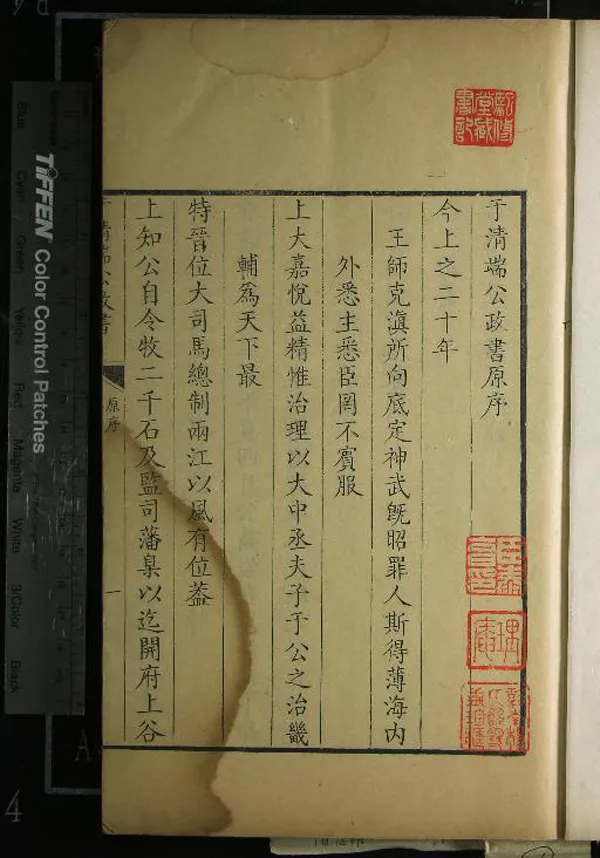 于清端公政書原序
今上之二十年
王師克滇所向底定神武旣昭罪人斯得薄海內
外悉主悉臣罔不賓服
上大嘉悅益精惟治理以大中丞夫子于公之治畿
輔爲天下最
特晉位大司馬總制兩江以風有位葢
上知公自令牧二千石及監司藩臬以迄開府上谷
于清端公政書
原序
一
TIFFEN Color Control Patches
Blue
Cyan
Green
Yellow
Red
Magenta
White
3/Color
Black
A
4